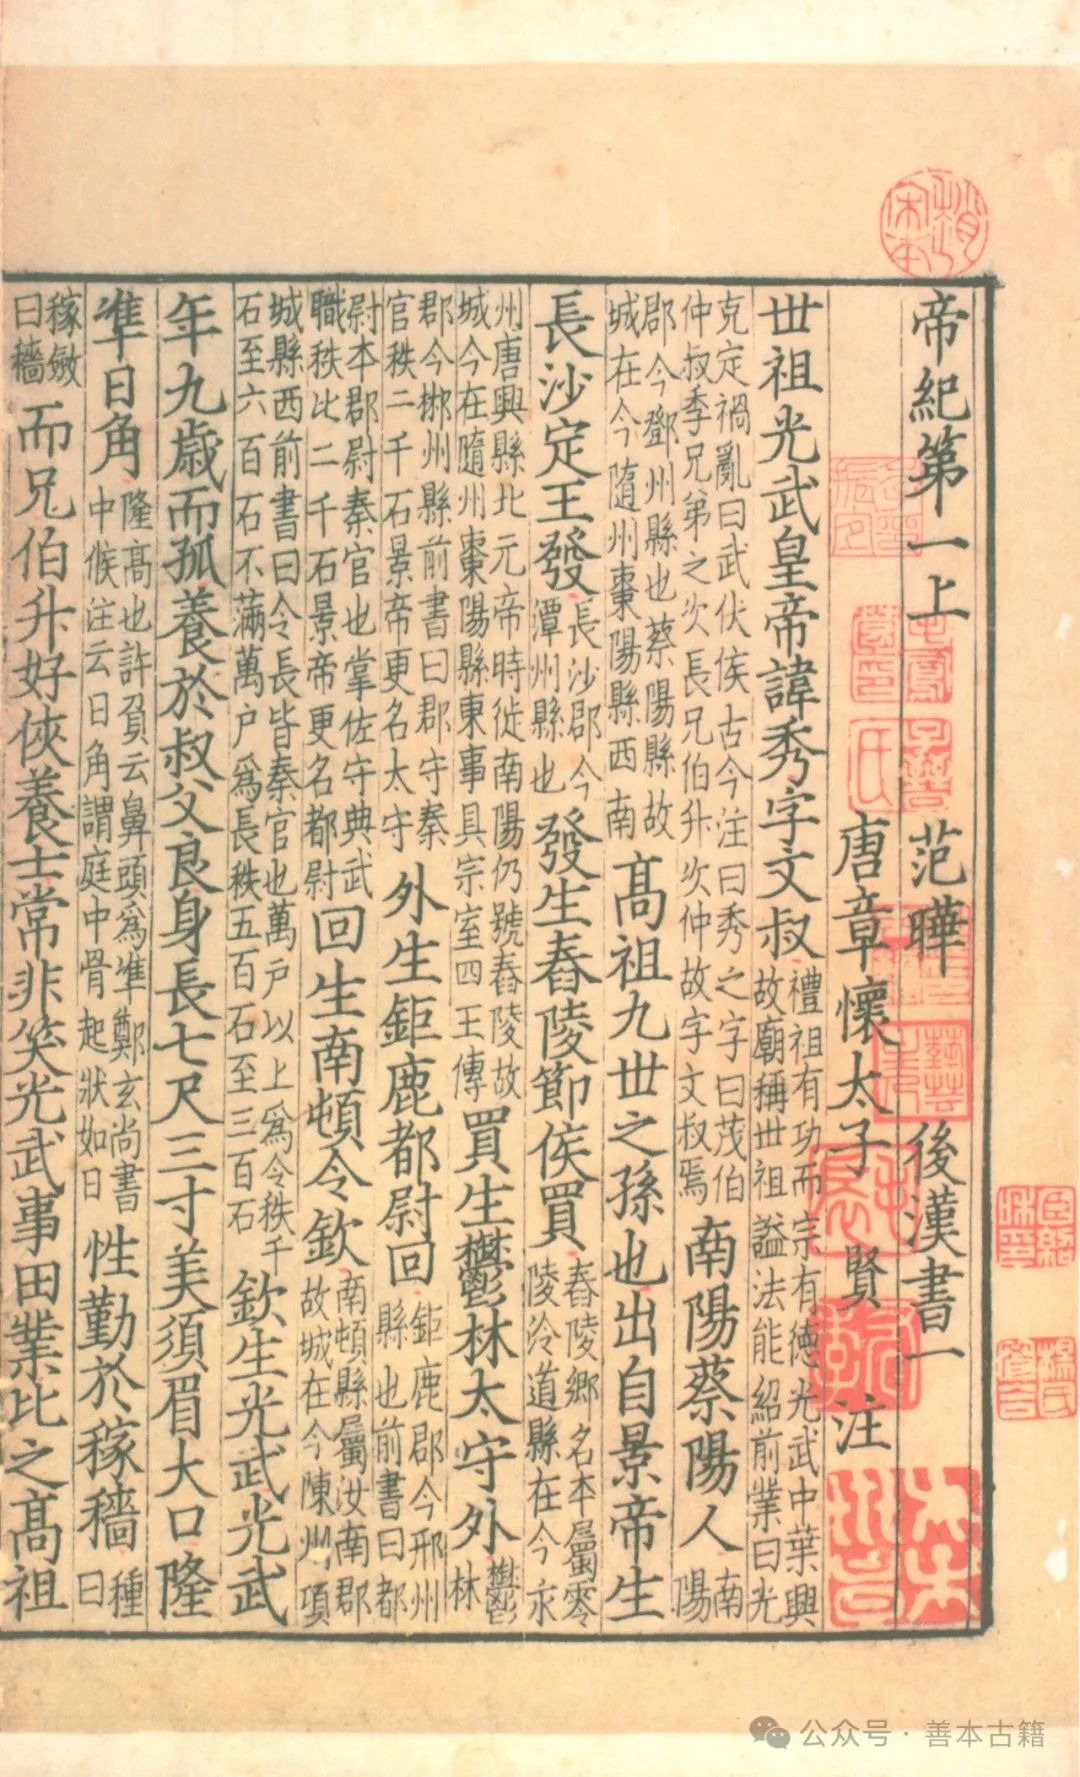 帝紀第一上 范曄 後漢書一
唐章懷太子賢注
世祖光武皇帝諱秀字文叔禮祖有功而宗有德光武中葉興故廟稱世祖謚法能紹前業曰光
克定禍亂曰武伏侯古今注曰秀之字曰茂伯仲叔季兄弟之次長兄伯升次仲故字文叔焉南陽蔡陽人南陽
郡今鄧州縣也蔡陽縣故城在今隨州棗陽縣西南高祖九世之孫也出自景帝生
長沙定王發長沙郡今潭州縣也發生舂陵節侯買舂陵鄉名本屬零陵泠道縣在今永
州唐興縣北元帝時徙南陽仍號舂陵故城今在隨州棗陽縣東事具宗室四王傳買生鬱林太守外鬱林
郡今郴州縣前書曰郡守秦官秩二千石景帝更名太守外生鉅鹿都尉回鉅鹿郡今邢州縣也前書曰都
尉本郡尉秦官也掌佐守典武職秩比二千石景帝更名都尉回生南頓令欽南頓縣屬汝南郡故城在今陳州項
城縣西前書曰令長皆秦官也萬戶以上爲令秩千石至六百石不滿萬戶爲長秩五百石至三百石欽生光武光武
年九歲而孤養於叔父良身長七尺三寸美須眉大口隆
準日角隆高也許負云鼻頭爲準鄭玄尚書中候注云日角謂庭中骨起狀如日性勤於稼穡種曰
稼斂曰穡而兄伯升好俠養士常非笑光武事田業比之高祖
公众号·善本古籍